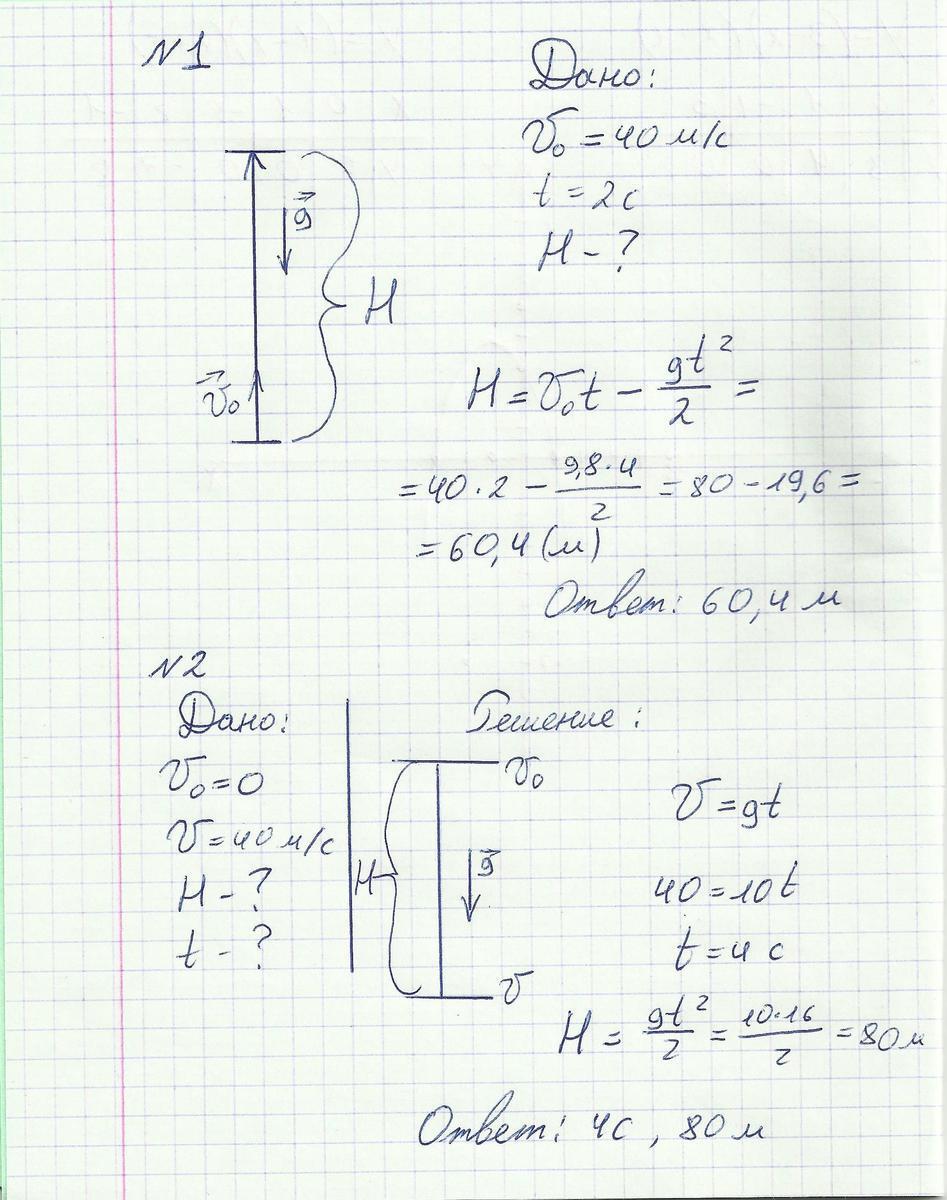 N1
Дано:
v₀ = 40 м/с
t = 2с
H - ?
g⃗
H
v⃗₀
H = v₀t - gt²/2 =
= 40·2 - 9,8·4/2 = 80 - 19,6 =
= 60,4 (м)
Ответ: 60,4 м
N2
Дано:
v₀ = 0
v = 40 м/с
H - ?
t - ?
Решение:
v₀
H
g⃗
v
v = gt
40 = 10t
t = 4 с
H = gt²/2 = 10·16/2 = 80м
Ответ: 4с, 80м